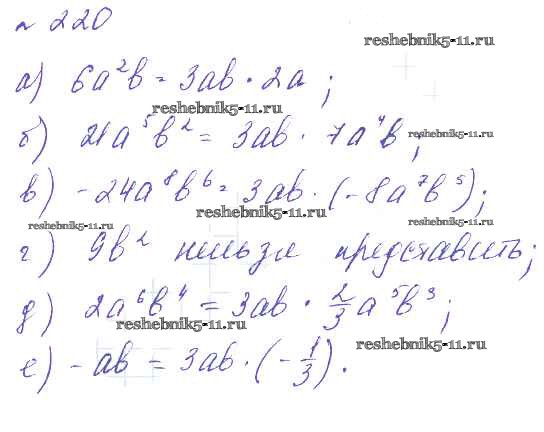 № 220
reshebnik5-11.ru
а) 6a²b = 3ab · 2a ;
reshebnik5-11.ru
б) 21a⁵b² = 3ab · 7a⁴b ;
reshebnik5-11.ru
в) -24a⁸b⁶ = 3ab · (-8a⁷b⁵);
reshebnik5-11.ru
reshebnik5-11.ru
reshebnik5-11.ru
г) 9b² нельзя представить;
д) 2a⁶b⁴ = 3ab · 2/3 a⁵b³ ;
reshebnik5-11.ru
е) -ab = 3ab · (-1/3).
reshebnik5-11.ru